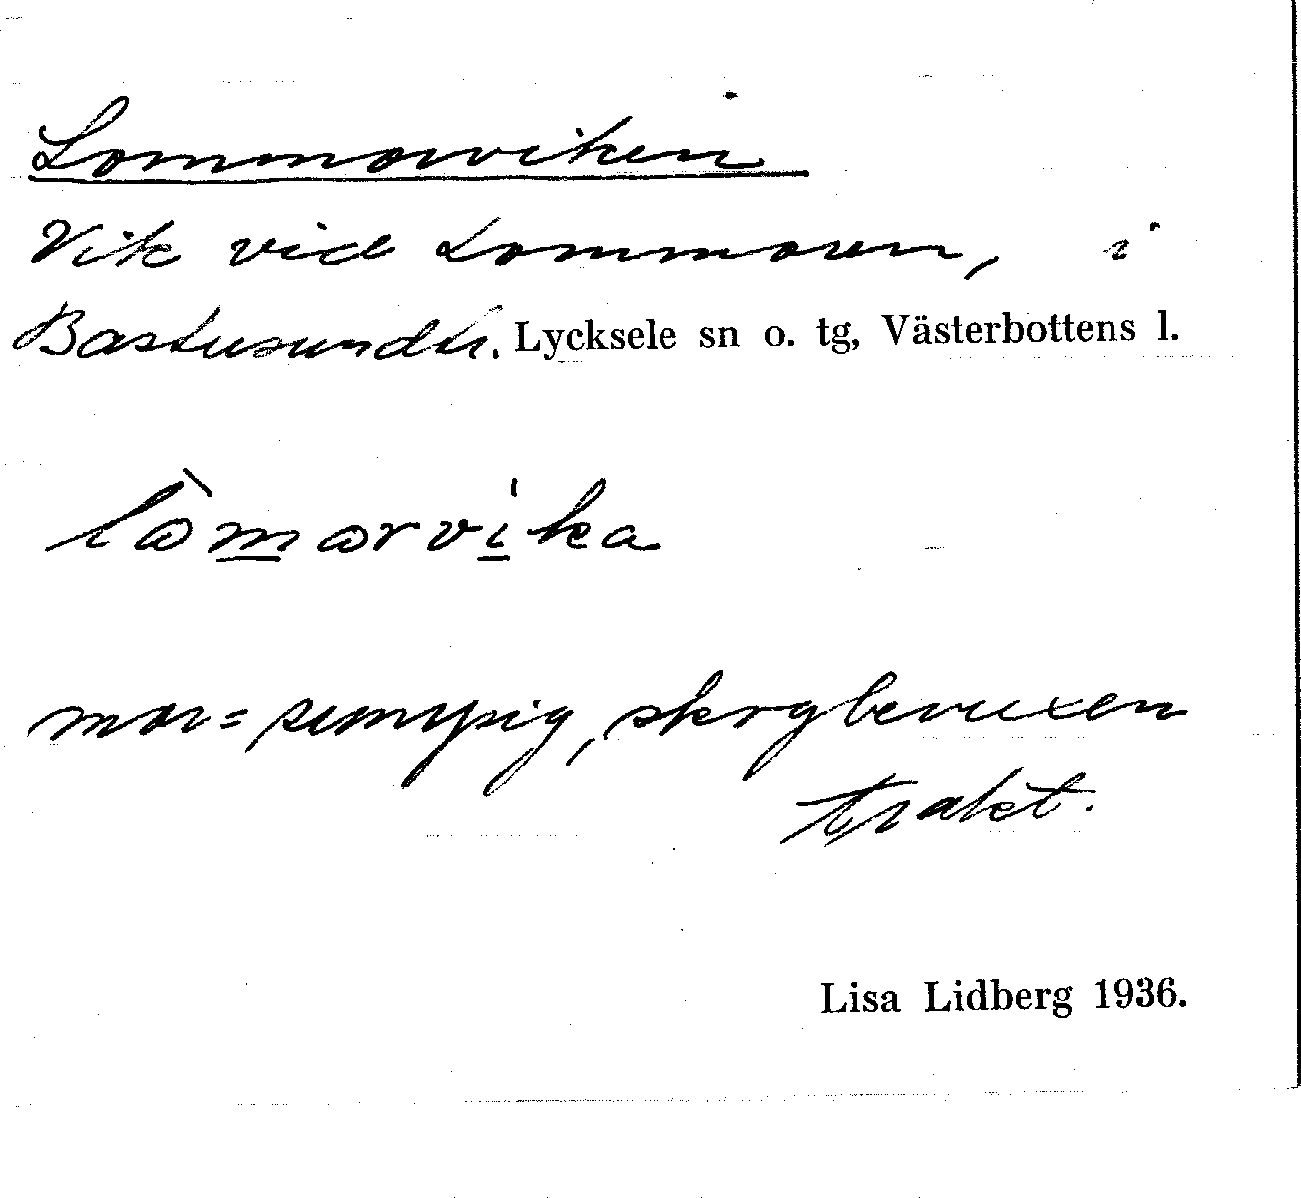 Lommorviken
Vik vid Lommoren, i
Bastusundts. Lycksele sn o. tg, Västerbottens l.
lòmorvika
mor = sumpig, skogbevuxen
trakt.
Lisa Lidberg 1936.